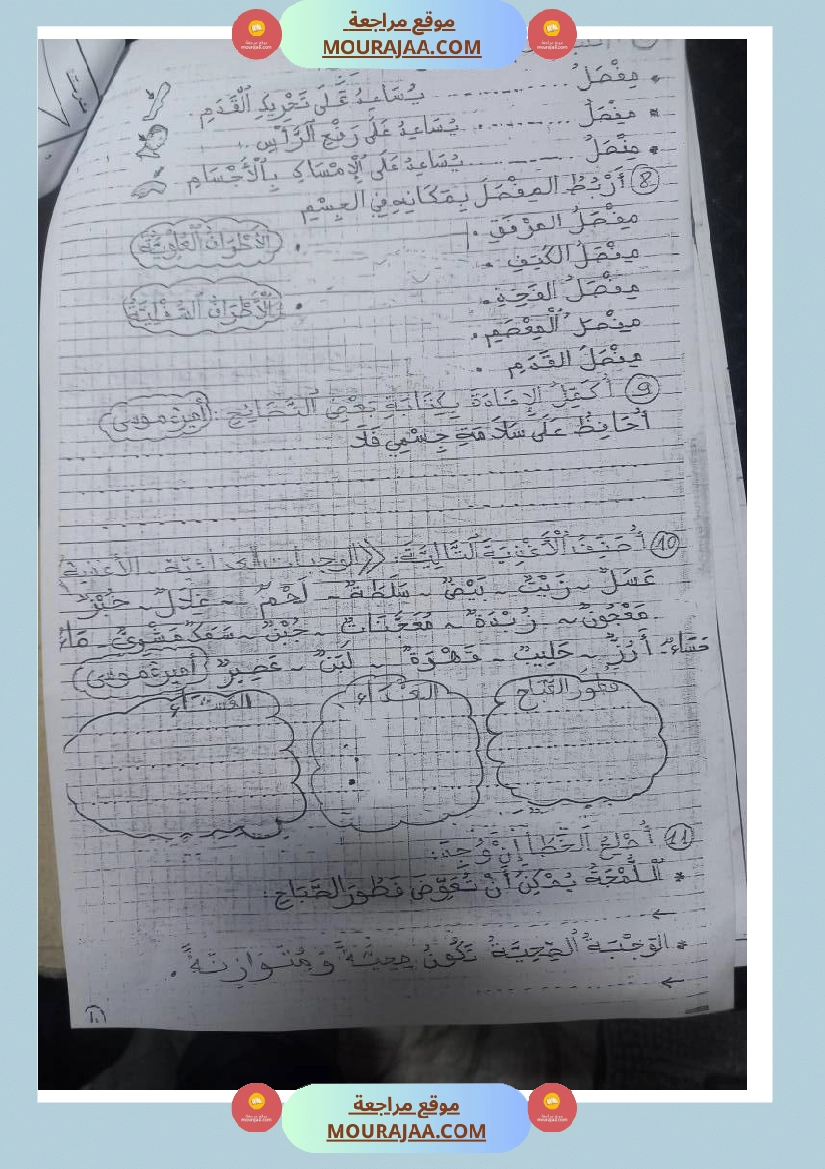 موقع مراجعة
MOURAJAA.COM
* مِفْصَلُ ............ يُسَاعِدُ عَلَى تَحْرِيكِ الْقَدَمِ.
* مِفْصَلُ ............ يُسَاعِدُ عَلَى رَفْعِ الرَّأْسِ.
* مِفْصَلُ ............ يُسَاعِدُ عَلَى الْإِمْسَاكِ بِالْأَجْسَامِ
8 أَرْبُطُ المِفْصَلَ بِمَكَانِهِ فِي الجِسْمِ
مِفْصَلُ المِرْفَقِ .
. الْأَطْرَافُ الْعُلْوِيَّةُ
مِفْصَلُ الكَتِفِ .
مِفْصَلُ الفَخِذِ.
. الْأَطْرَافُ السُّفْلِيَّةُ
مِفْصَلُ الْمِعْصَمِ .
مِفْصَلُ القَدَمِ .
9 أُكْمِلُ الإِفَادَةَ بِكِتَابَةِ بَعْضِ النَّصَائِحِ : أميرة موسى
أُحَافِظُ عَلَى سَلَامَةِ جِسْمِي فَلَا
10 أُصَنِّفُ الْأَغْذِيَةَ التَّالِيَةَ: الوجبات الغذائية - الأغذية
عَسَلٌ - زَيْتٌ - بَيْضٌ - سَلَطَةٌ - لَحْمٌ - غِلَالٌ - خُبْزٌ
مَعْجُونٌ - زُبْدَةٌ - مُعَجَّنَاتٌ - جُبْنٌ - سَمَكٌ مَشْوِيٌّ - مَاءٌ
حَسَاءٌ - أَرُزٌّ - حَلِيبٌ - قَهْوَةٌ - لَبَنٌ - عَصِيرٌ أميرة موسى
فطور الصّباح
الغَدَاءُ
العَشَاءُ
11 أُصْلِحُ الخَطَأَ إِنْ وُجِدَ:
* اللُّمْجَةُ يُمْكِنُ أَنْ تُعَوِّضَ فَطُورَ الصَّبَاحِ .
* الوَجْبَةُ الصِّحِيَّةُ تَكُونُ صِحِيَّةً وَ مُتَوَازِنَةً .
موقع مراجعة
MOURAJAA.COM